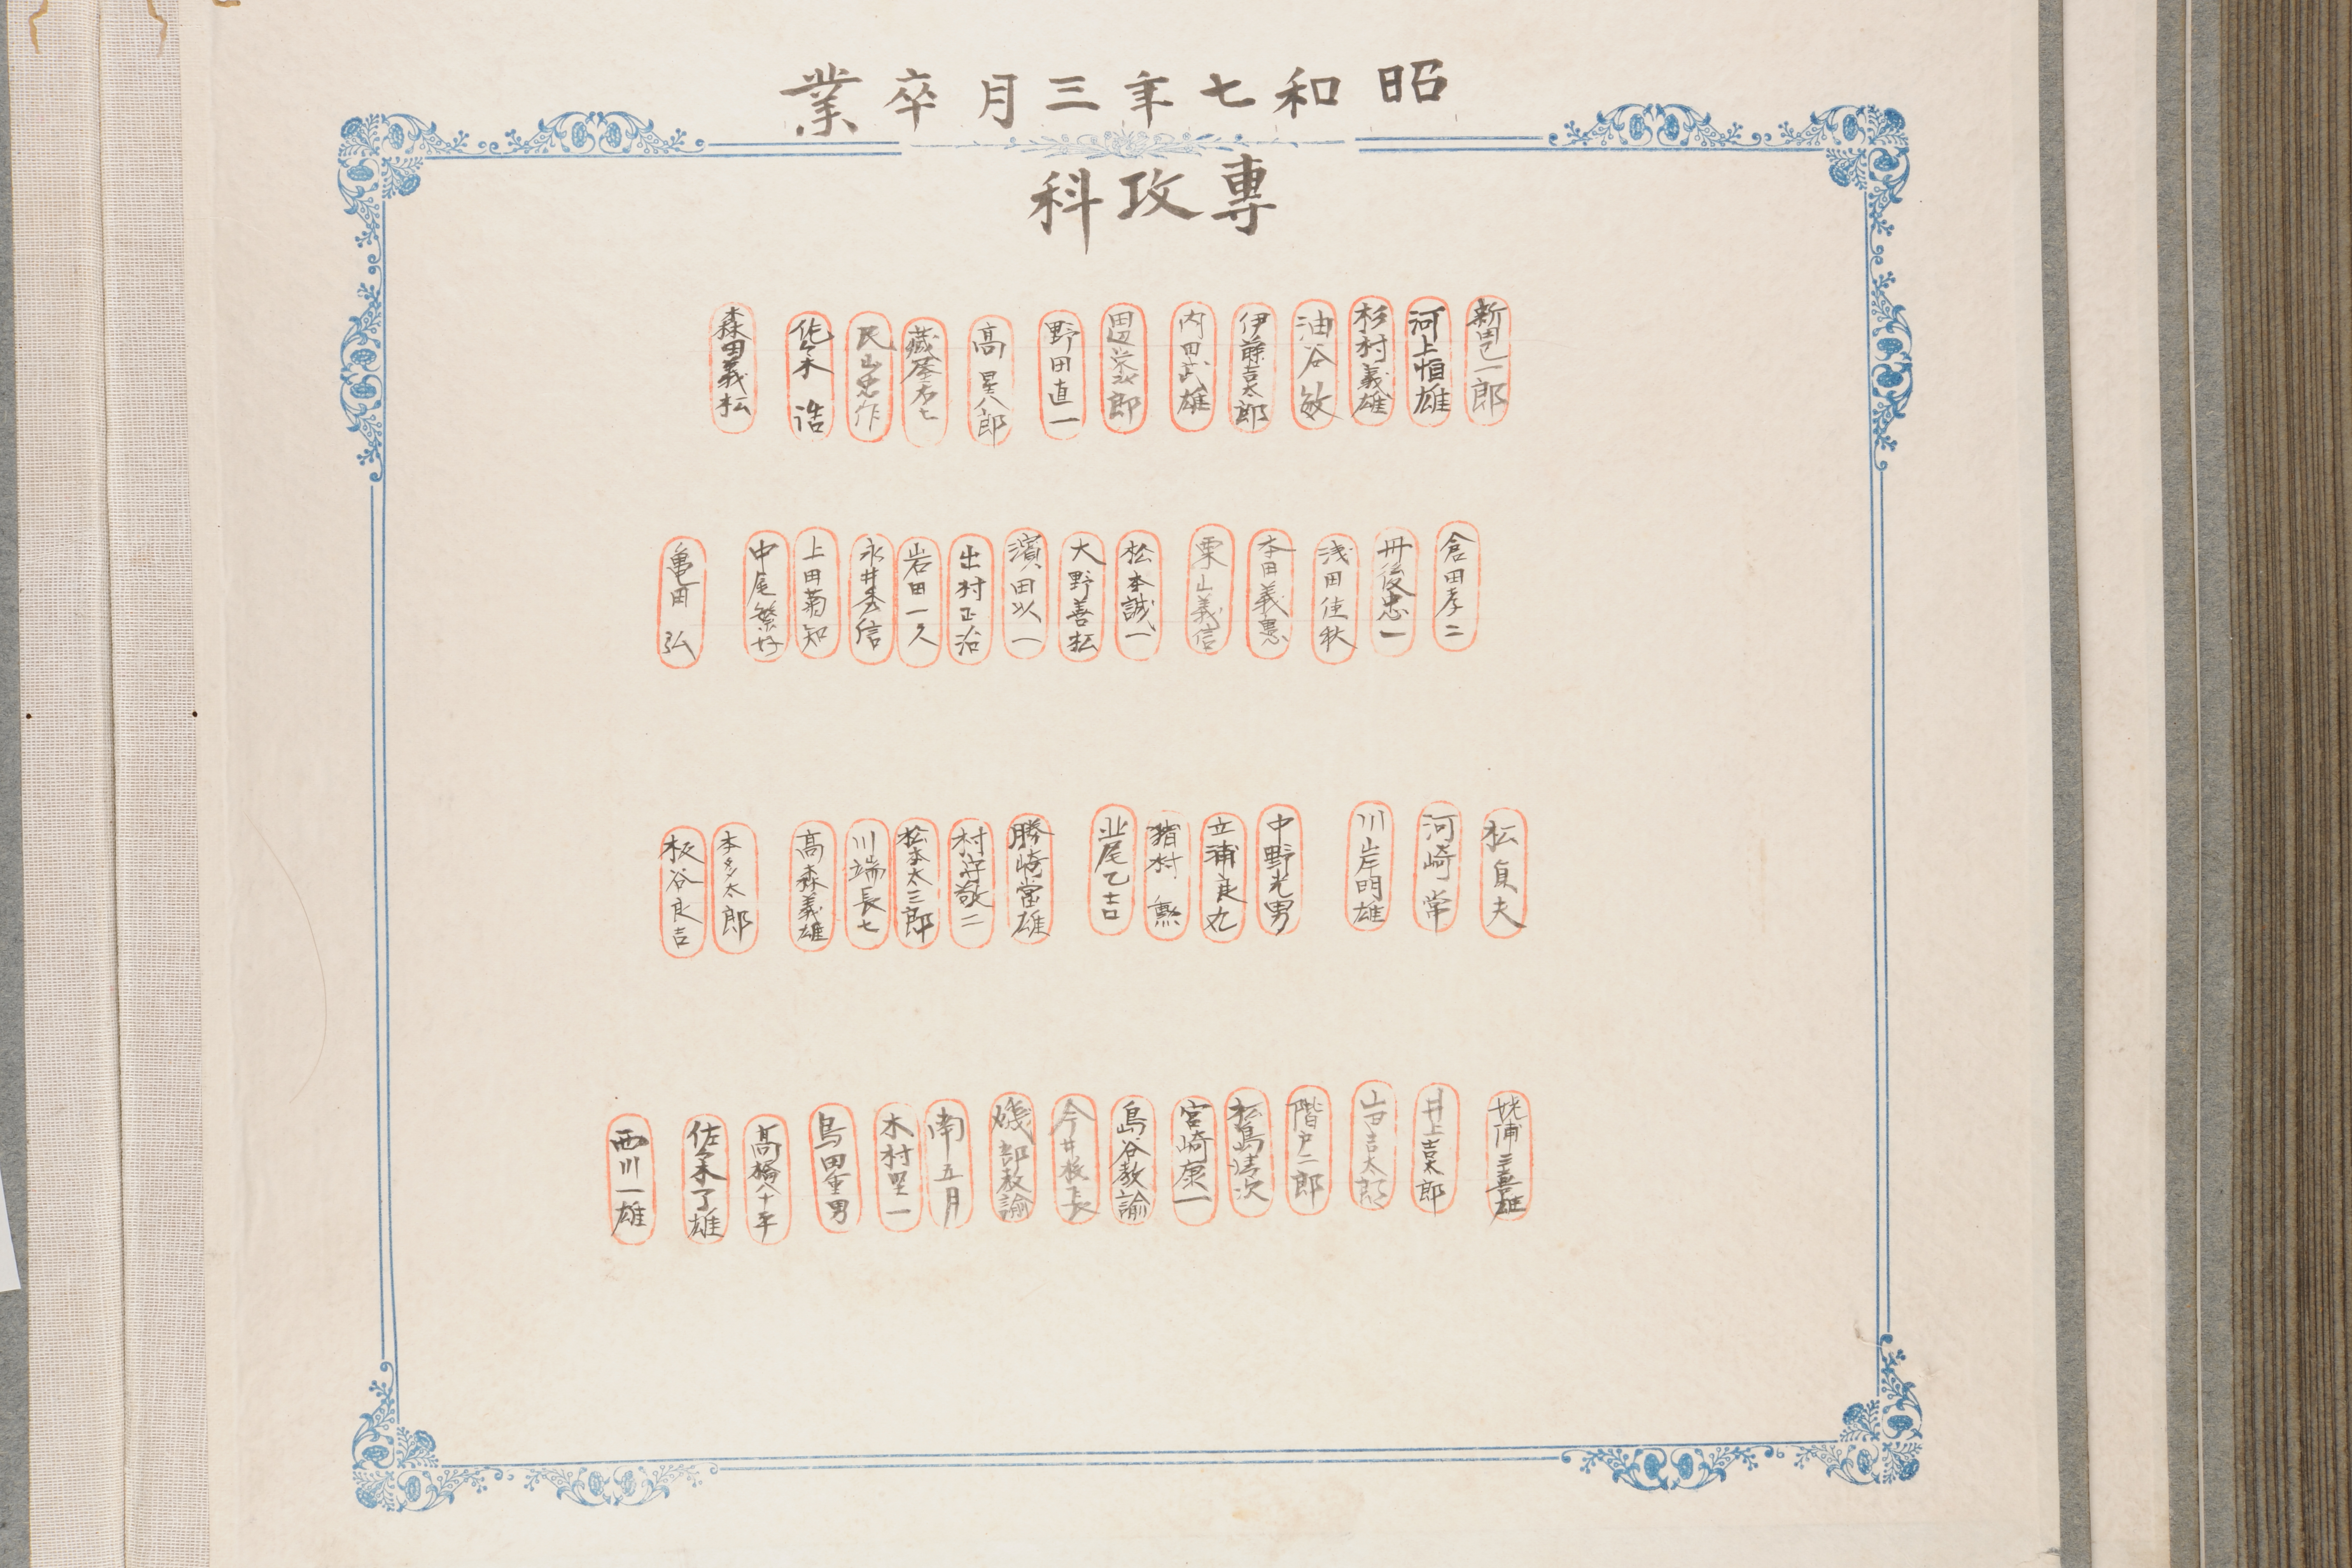 昭和七年三月卒業
專攻科
新田巳一郎
河上恒雄
杉村義雄
油谷敏
伊藤吉太郎
内田武雄
田辺栄次郎
野田直一
高星八郎
藏屋右七
民山忠作
佐々木浩
森田義松
倉田孝二
丹後忠一
浅田佳秋
本田義憲
栗山義信
松本誠一
大野善松
濱田以一
出村正治
岩田一久
永井秀信
上田菊知
中尾繁好
亀田弘
松貞夫
河崎常
川岸明雄
中野光男
立浦良丸
猪村勲
北尾乙吉
勝崎當雄
村守敬二
松本太三郎
川端長七
高森義雄
本多太郎
板谷良吉
姥浦三喜雄
井上吉太郎
山田吉太郎
階戸二郎
松島清次
宮崎康一
島谷教諭
今井校長
磯部教諭
南五月
木村堅一
島田重男
高橋八十平
佐々木了雄
西川一雄